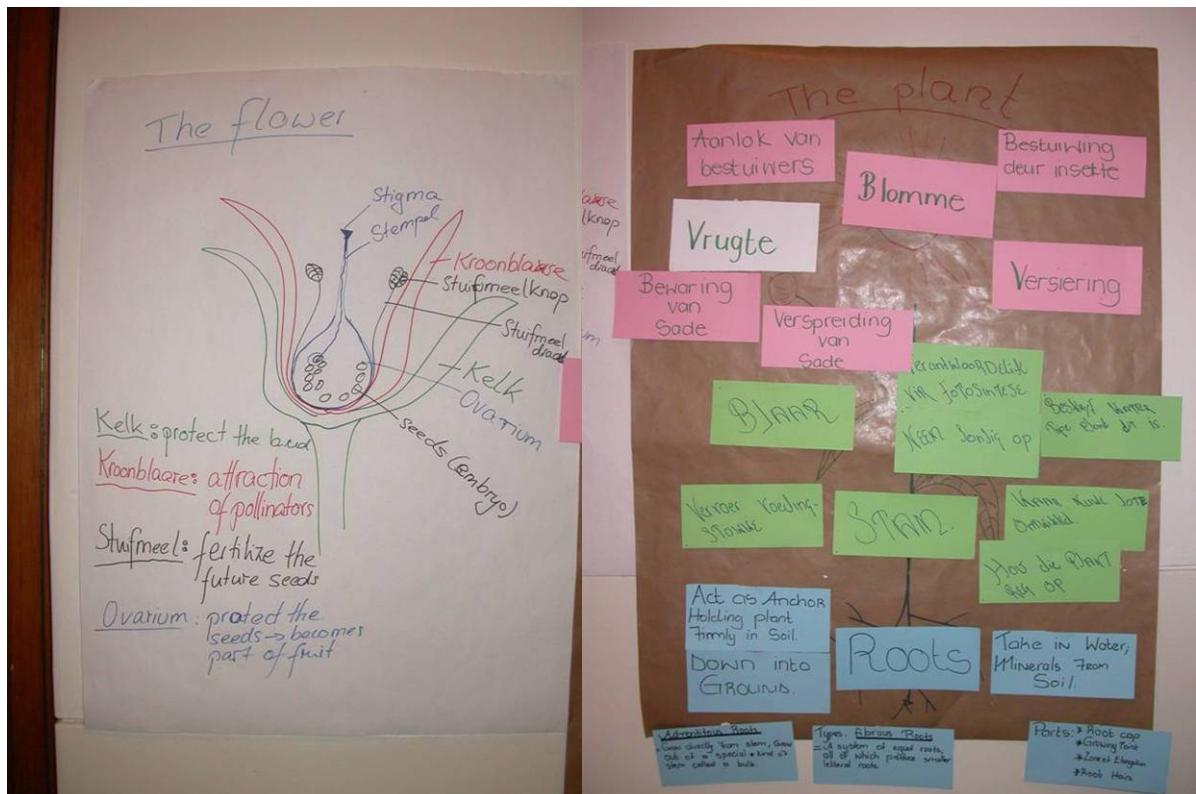 The flower
Stigma
Stempel
Kroonblaare
Stuifmeelknop
Stuifmeel
draad
Kelk
Ovarium
seeds (embryo)
Kelk: protect the bud
Kroonblaare: attraction
of pollinators
Stuifmeel: fertilize the
future seeds
Ovarium: protect the
seeds → becomes
part of fruit
The plant
Aanlok van
bestuiwers
Blomme
Bestuiwing
deur insekte
Vrugte
Versiering
Bewaring
van
Sade
Verspreiding
van
Sade
BLAAR
VERANTWOORDELIK
VIR FOTOSINTESE
NEEM Sonlig op
Vervoer Voeding-
STOWWE
STAM
Hou die PLANT
Reg OP
Act as Anchor
Holding plant
Firmly in Soil.
Down into
Ground.
Roots
Take in Water,
Minerals From
Soil.
Adventitous Roots
Grow directly from stem, Grow
out of a special kind of
stem called a bulb.
Types. Fibrous Roots
= A system of equal roots,
all of which produce smaller
lateral roots
Parts: * Root cap
* Growing Point
* Zone of Elongation
* Root Hairs